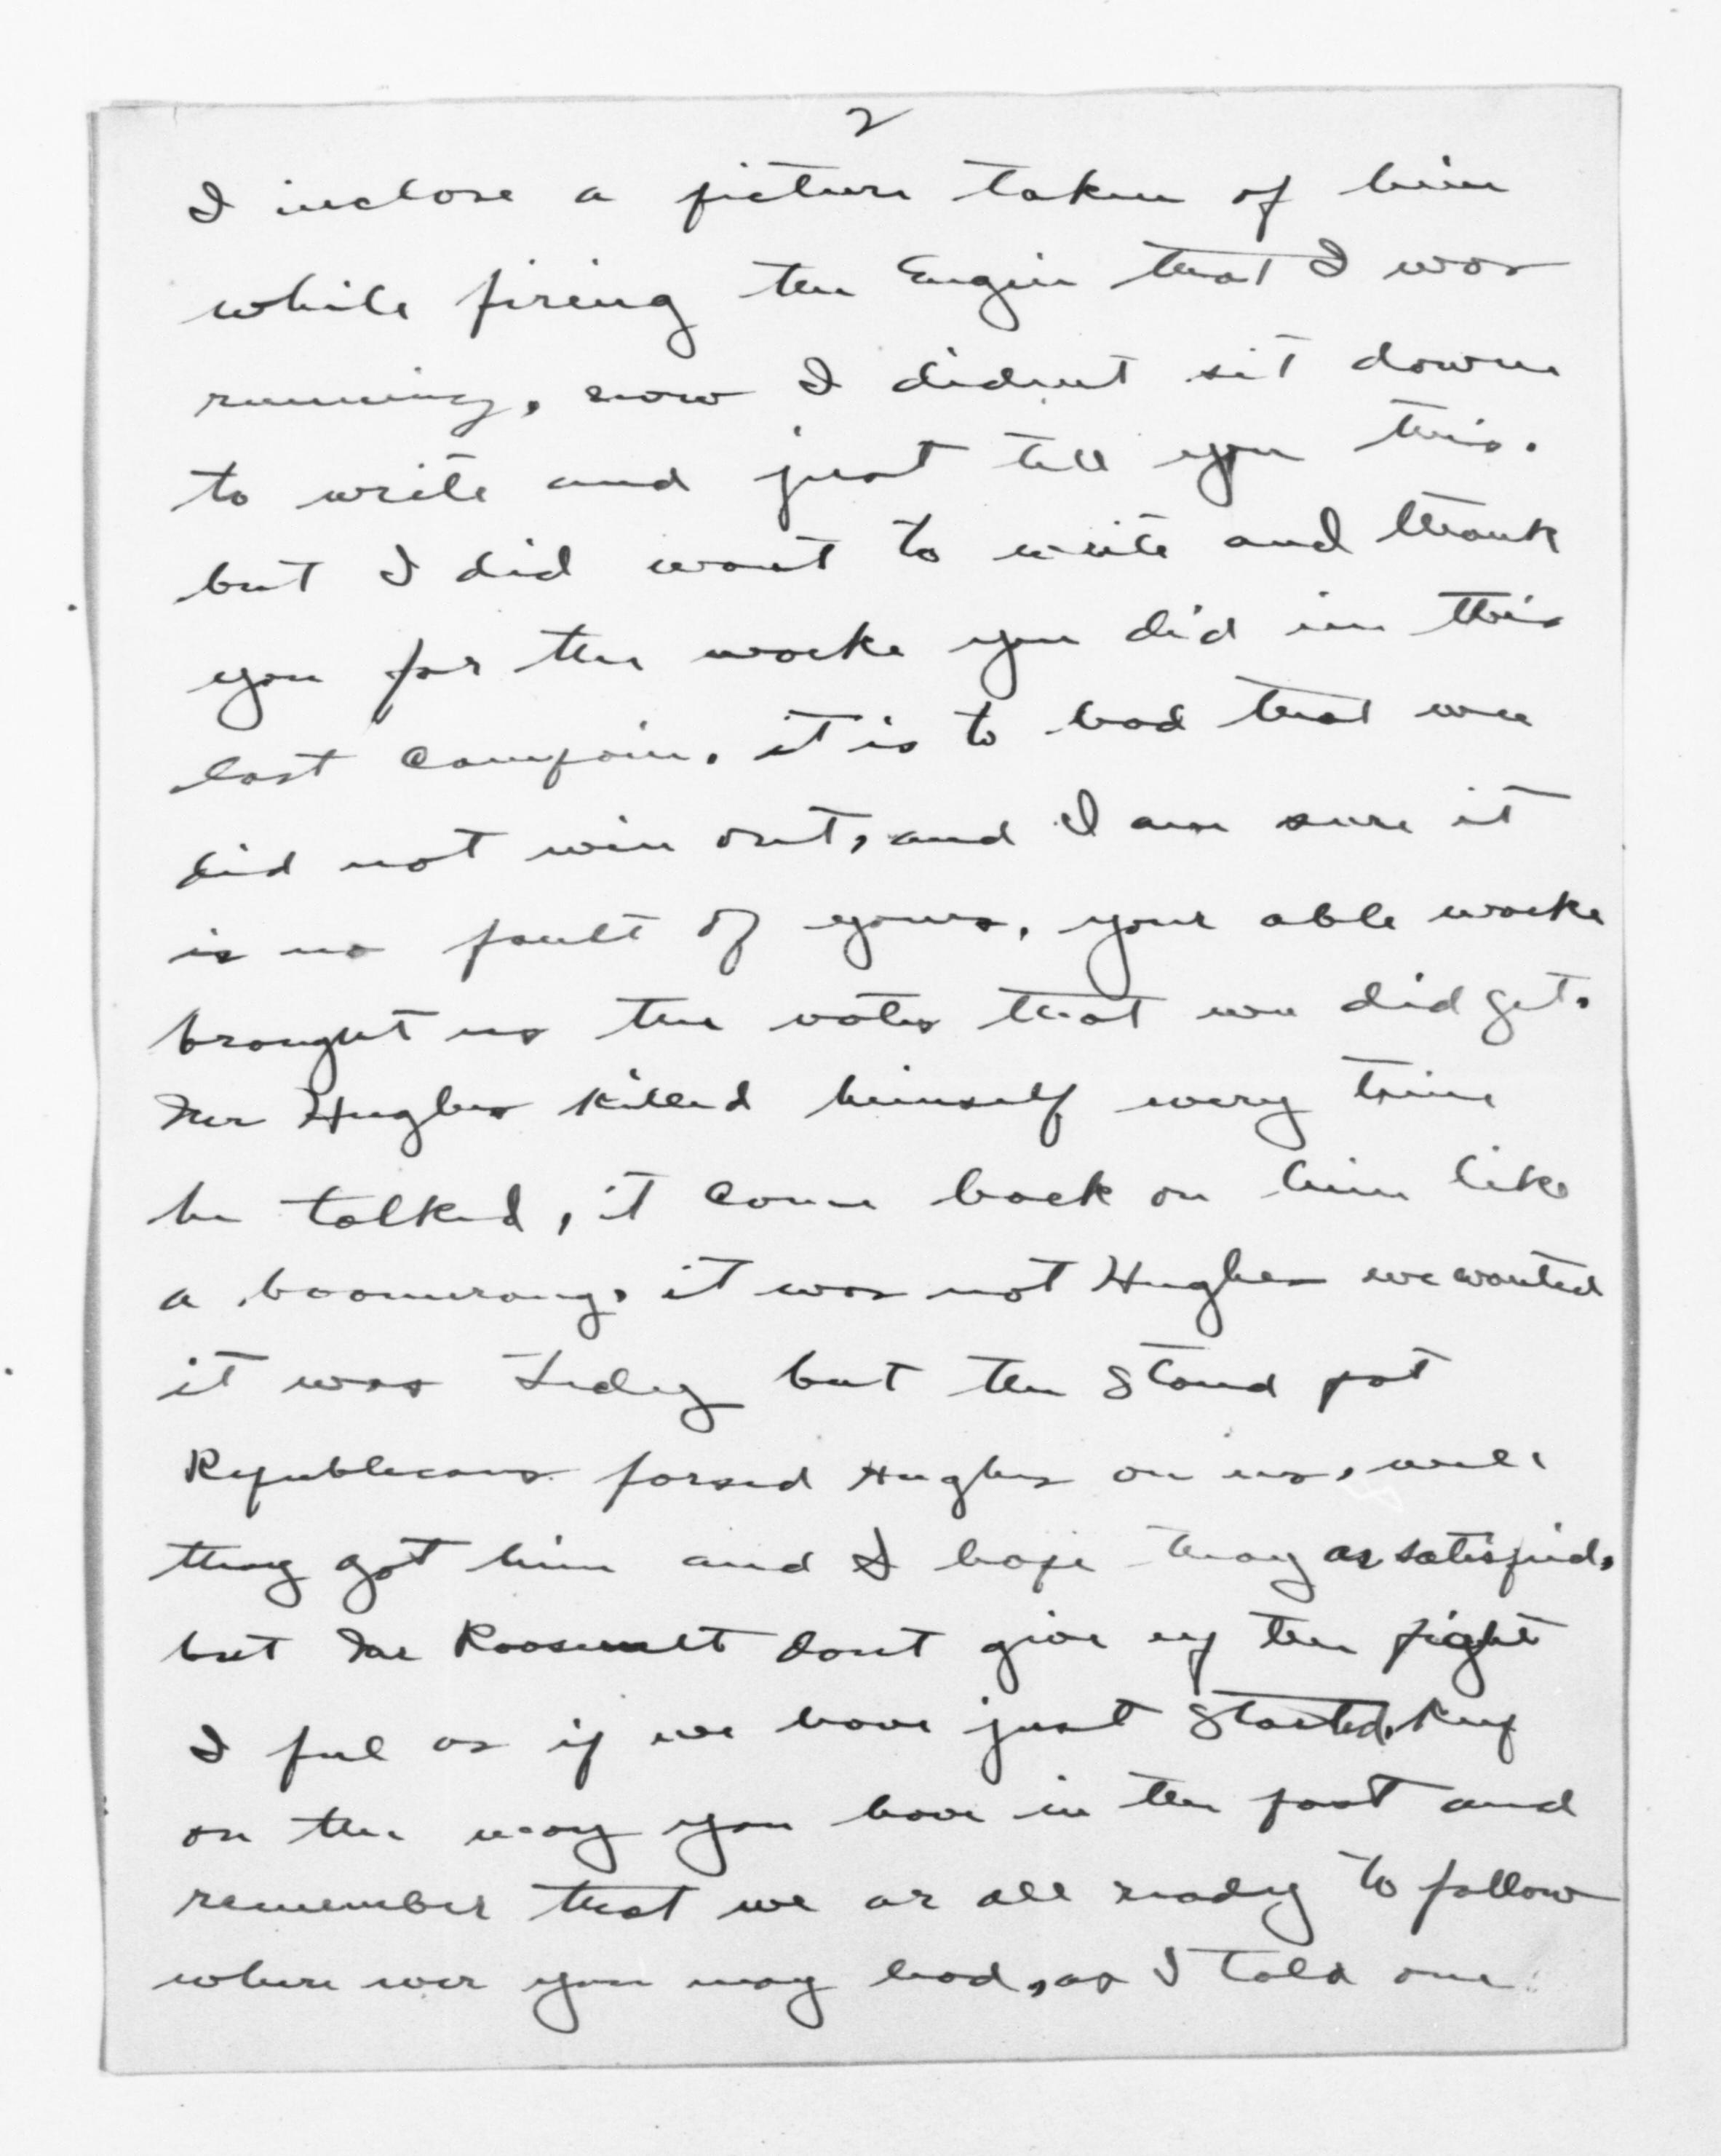 2
I inclose a picture taken of him
while firing the Engin that I was
running, now I dident sit down
to write and just tell you this.
but I did want to write and thank
you for the worke you did in this
last Campain. it is to bad that we
did not win out, and I am sure it
is no fault of yours, your able worke
brought us the votes that we did get.
Mr Hughes killed himself every time
he talked, it come back on him like
a boomerang. it was not Hughes we wanted
it was Tedey but the Stand pat
Republicans forsed Hughes on us, well
they got him and I hope thay ar satisfied.
but Mr Roosevelt dont give up the fight
I feel as if we have just Started. Keep
on the way you have in the past and
remember that we ar all ready to follow
where ever you may lead, as I told one